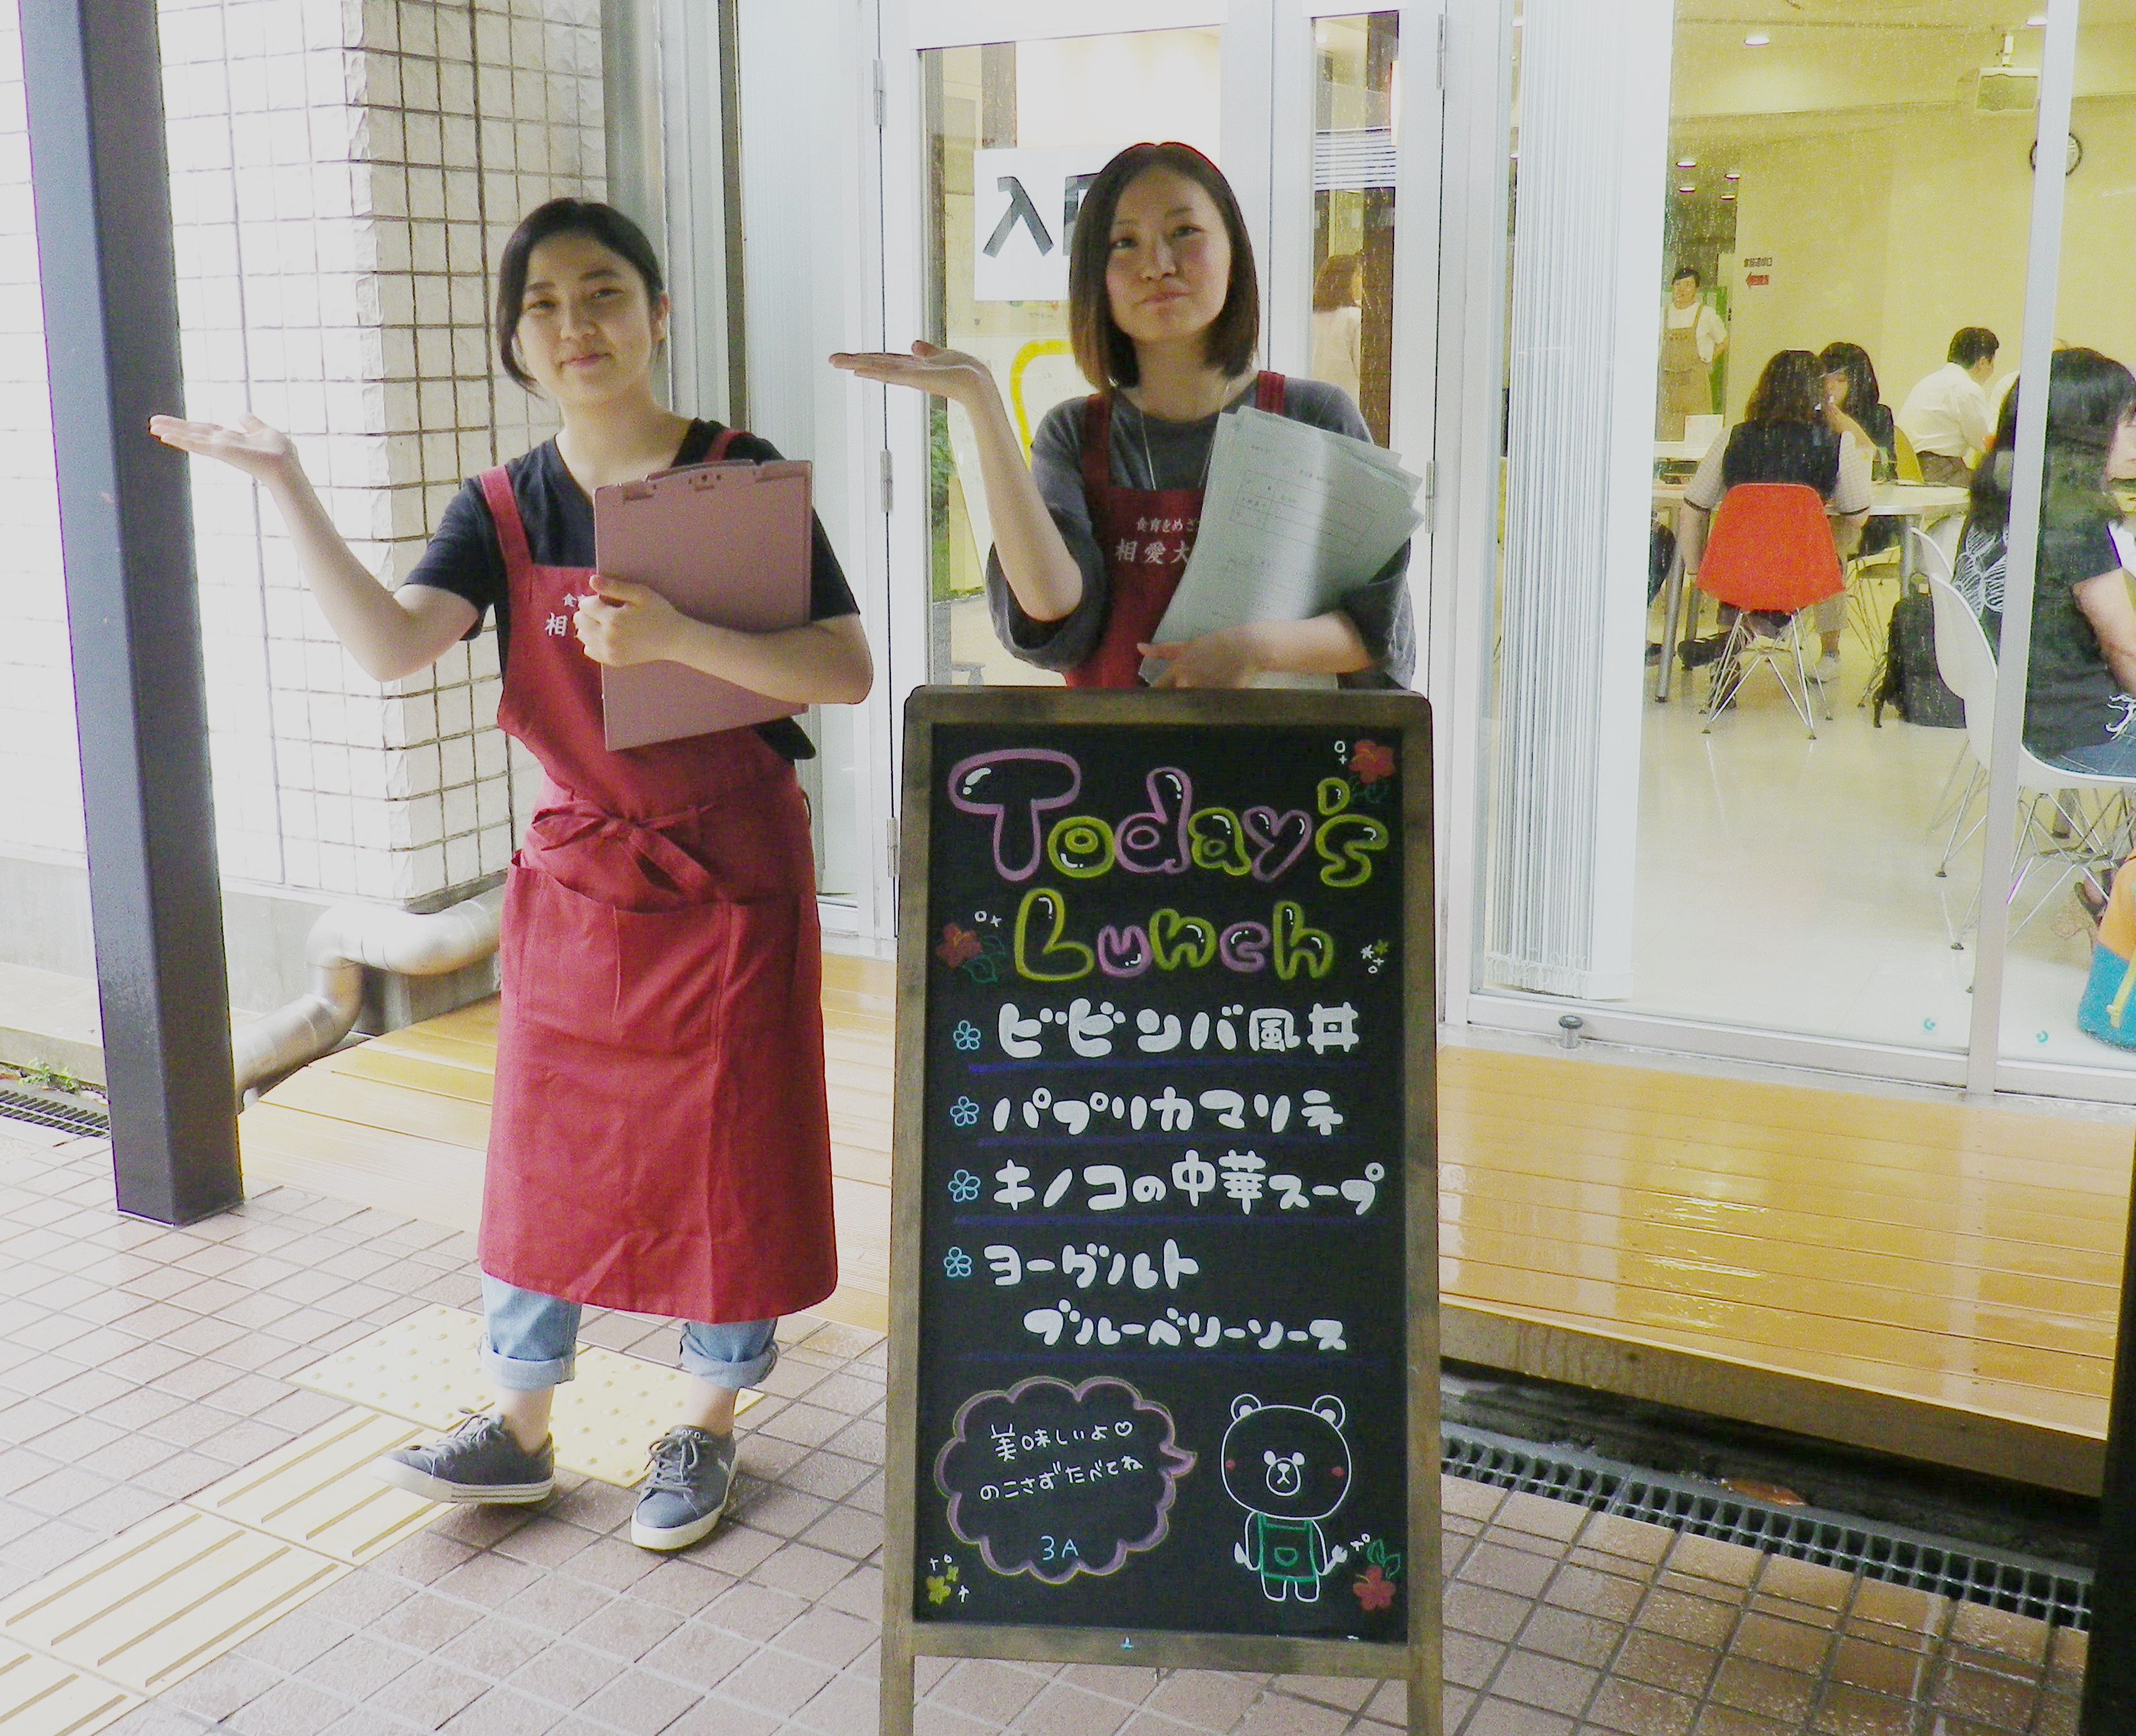 入口
食育をめざ
相愛大
食
相
Today's
Lunch
ビビンバ風丼
パプリカマリネ
キノコの中華スープ
ヨーグルト
ブルーベリーソース
美味しいよ♡
のこさずたべてね
3A